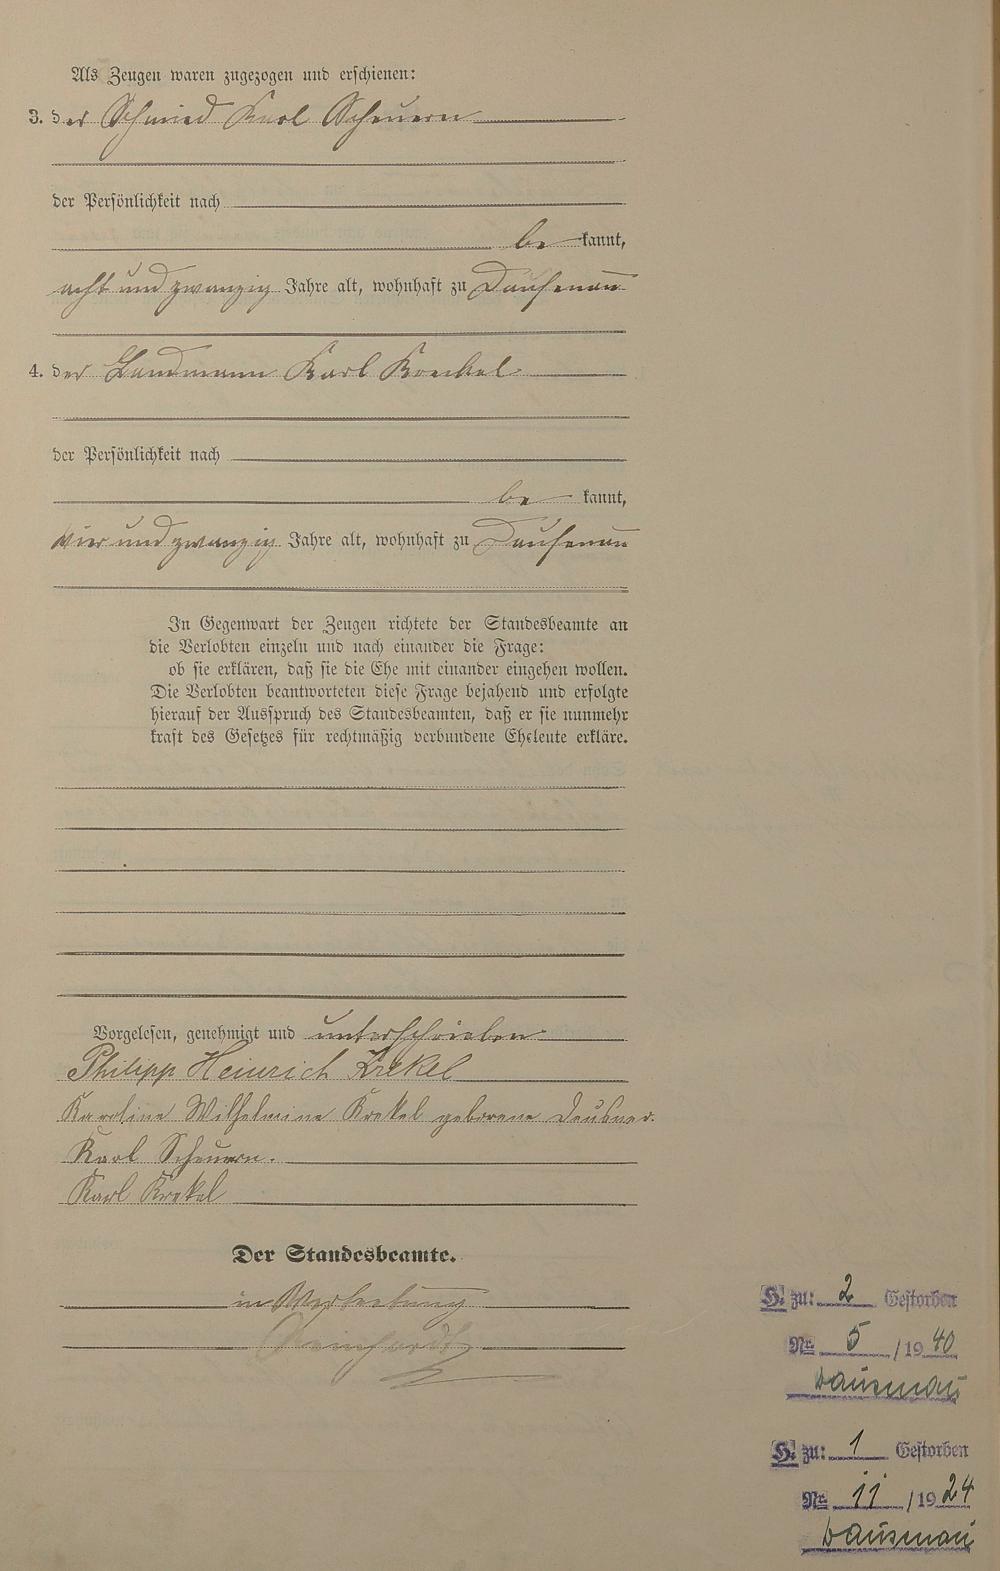 Als Zeugen waren zugezogen und erschienen:
3. der Schmied Karl Scheuern
der Persönlichkeit nach
be kannt,
acht und zwanzig Jahre alt, wohnhaft zu Dausenau
4. der Landmann Karl Krekel
der Persönlichkeit nach
be kannt,
vier und zwanzig Jahre alt, wohnhaft zu Dausenau
In Gegenwart der Zeugen richtete der Standesbeamte an
die Verlobten einzeln und nach einander die Frage:
ob sie erklären, daß sie die Ehe mit einander eingehen wollen.
Die Verlobten beantworteten diese Frage bejahend und erfolgte
hierauf der Ausspruch des Standesbeamten, daß er sie nunmehr
kraft des Gesetzes für rechtmäßig verbundene Eheleute erkläre.
Vorgelesen, genehmigt und unterschrieben
Philipp Heinrich Krekel
Karoline Wilhelmine Krekel geborene Deusner.
Karl Scheuern.
Karl Krekel
Der Standesbeamte.
in Vertretung
Reinhardt
H. zu: 2 Gestorben
Nr. 5 /1940
Dausenau
H. zu: 1 Gestorben
Nr. 11 /1924
Dausenau